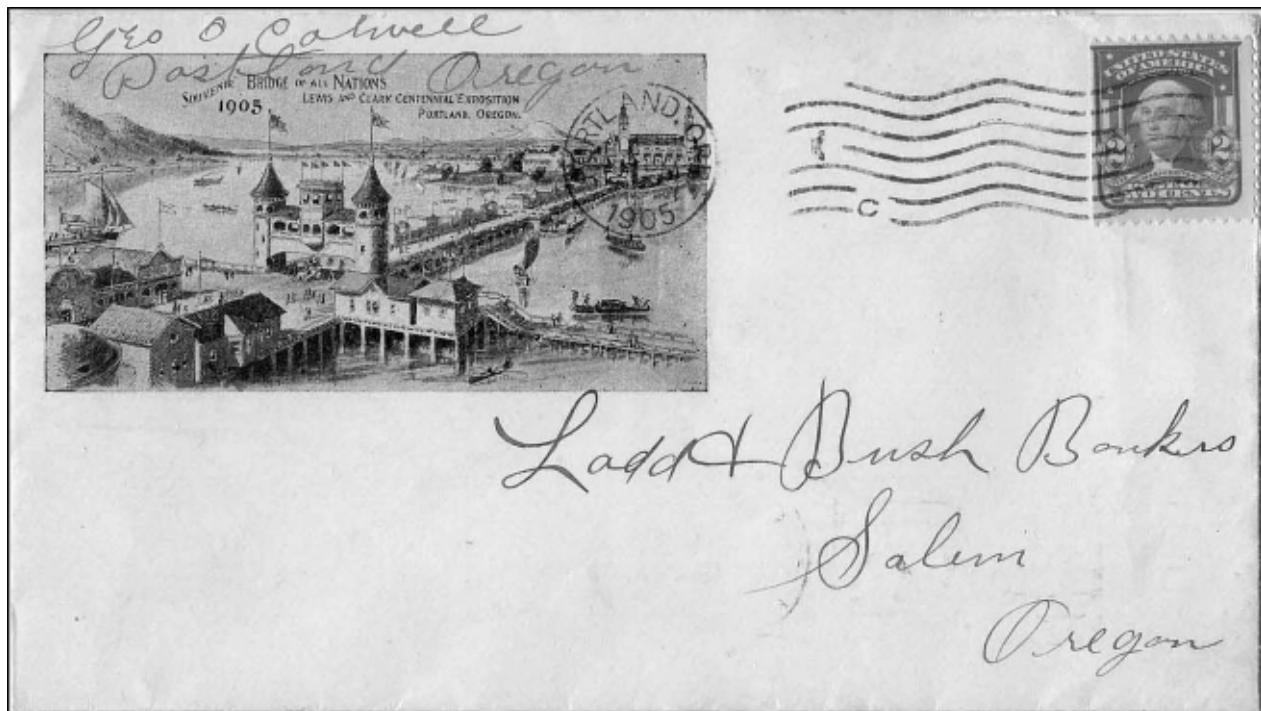 Geo O Catwell
Portland Oregon
SOUVENIR BRIDGE OF ALL NATIONS
1905 LEWIS AND CLARK CENTENNIAL EXPOSITION
PORTLAND, OREGON.
RTLAND, O
1905
C
UNITED STATES
OF AMERICA
2 2
TWO CENTS
Ladd & Bush Bankers
Salem
Oregon